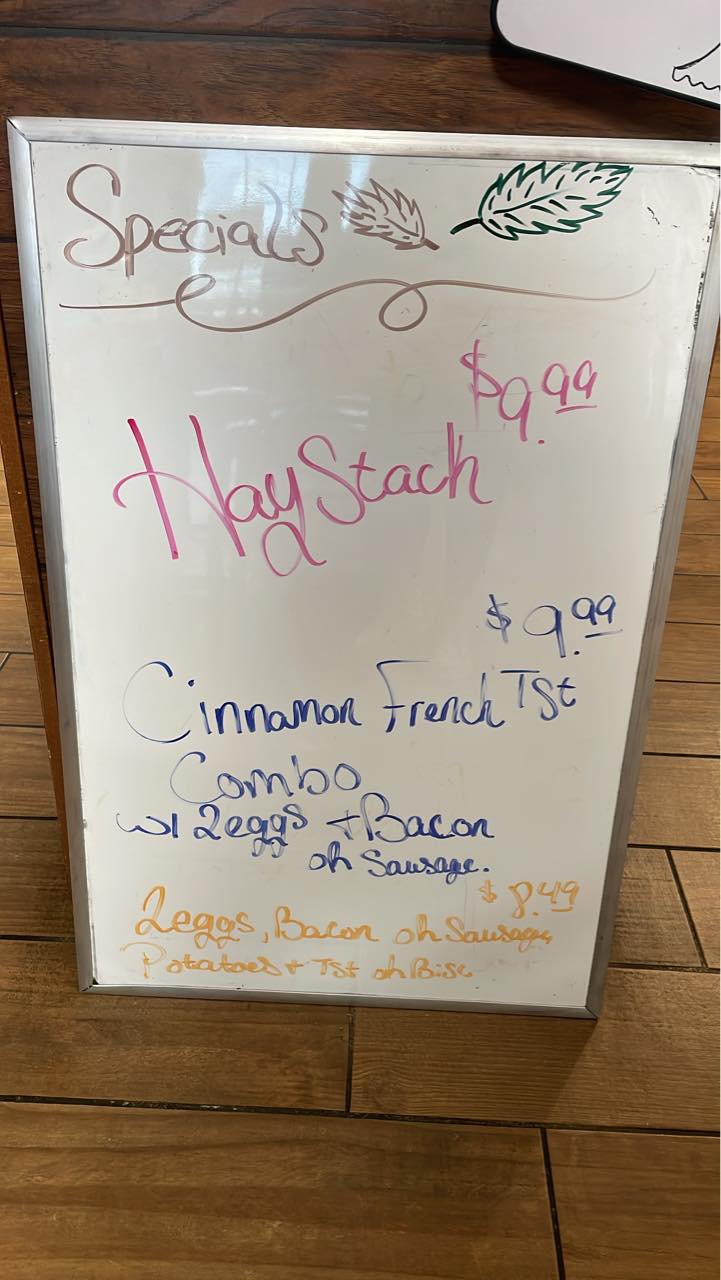 Specials
$9.99
HayStack
$9.99
Cinnamon French Tst
Combo
w/ 2eggs + Bacon
or Sausage.
$8.49
2eggs, Bacon or Sausage,
Potatoes + Tst or Bisc